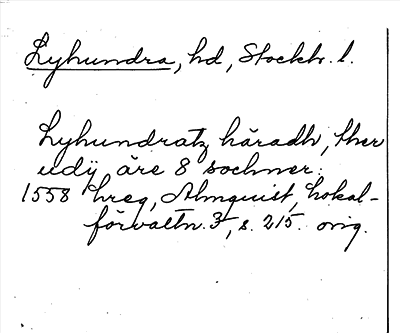 Lyhundra, hd, Stockh. l.
Lyhundratz häradh, ther
udij äre 8 sochner:
1558 hreg, Almquist, Lokal-
förvaltn. 3, s. 215. orig.